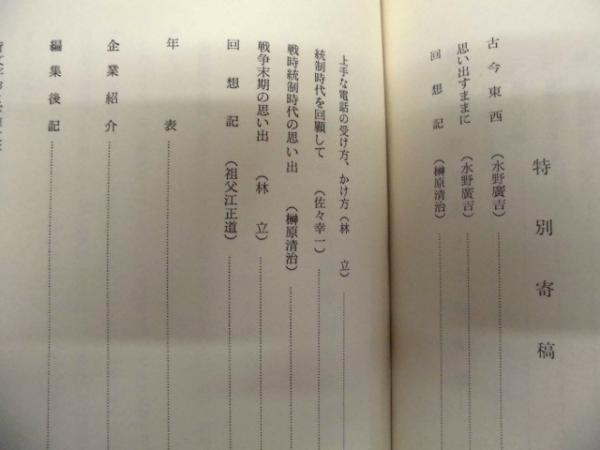 特別寄稿
古今東西（水野廣吉）
思い出すままに（水野廣吉）
回想記（榊原清治）
上手な電話の受け方、かけ方（林 立）
統制時代を回顧して（佐々幸一）
戦時統制時代の思い出（榊原清治）
戦争末期の思い出（林 立）
回想記（祖父江正道）
年表
企業紹介
編集後記